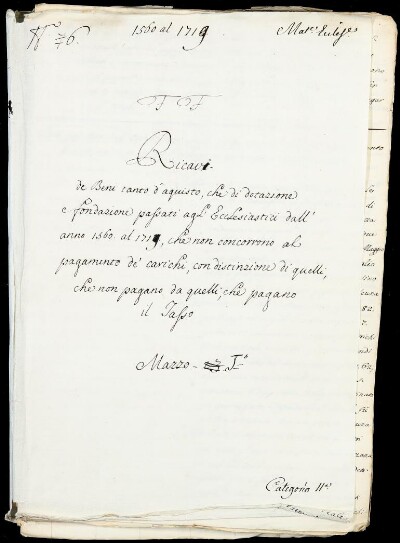 1560 al 1719
Mat.ª Eccles.ª
N.º 76.
Ricavi
de Beni tanto d'aquisto, che di dotazione
e fondazione passati agl' Ecclesiastici dall'
anno 1560. al 1719, che non concorrono al
pagamento de' carichi, con distinzione di quelli,
che non pagano da quelli, che pagano
il Tasso
Mazzo I.º
Categoria II.ª